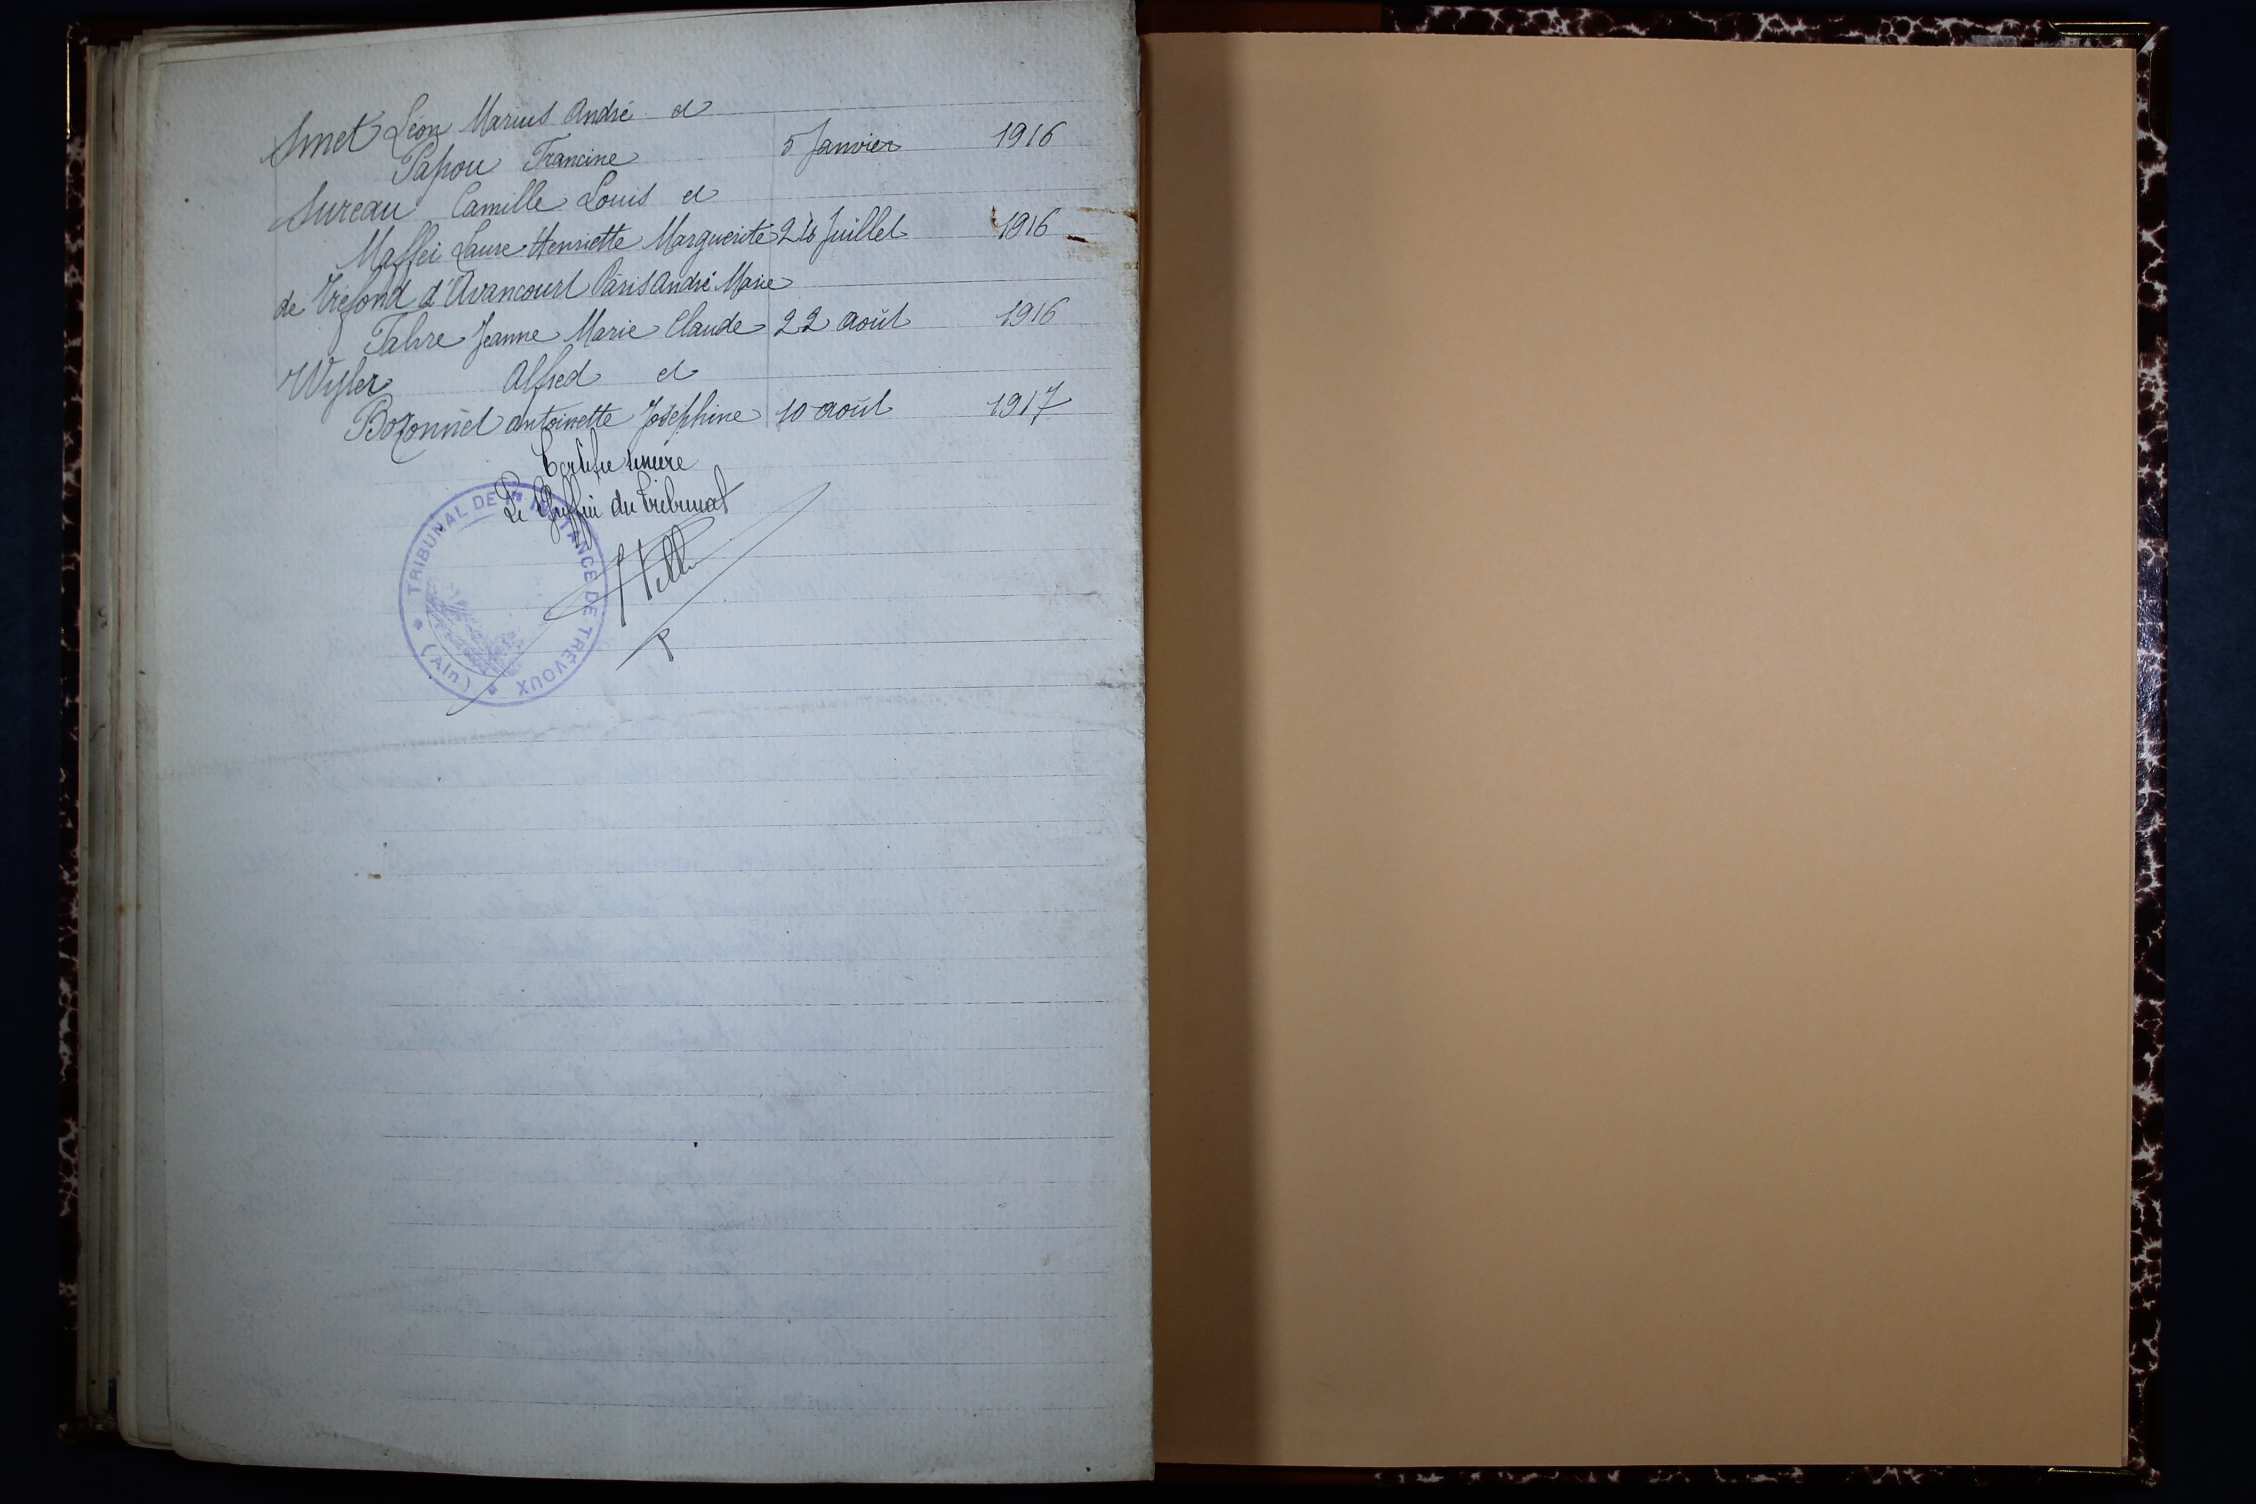 Smet Léon Marius André et
Papou Francine 5 Janvier 1916
Sureau Camille Louis et
Maffei Laure Henriette Marguerite 2 Juillet 1916
de Trefond d'Avancourt Pâris André Marie
Fabre Jeanne Marie Claude 22 août 1916
Wyler Alfred et
Bozonnet antoinette Joséphine 10 août 1917
Certifié sincère
Le Greffier du tribunal
TRIBUNAL DE INSTANCE DE TRÉVOUX
(Ain)